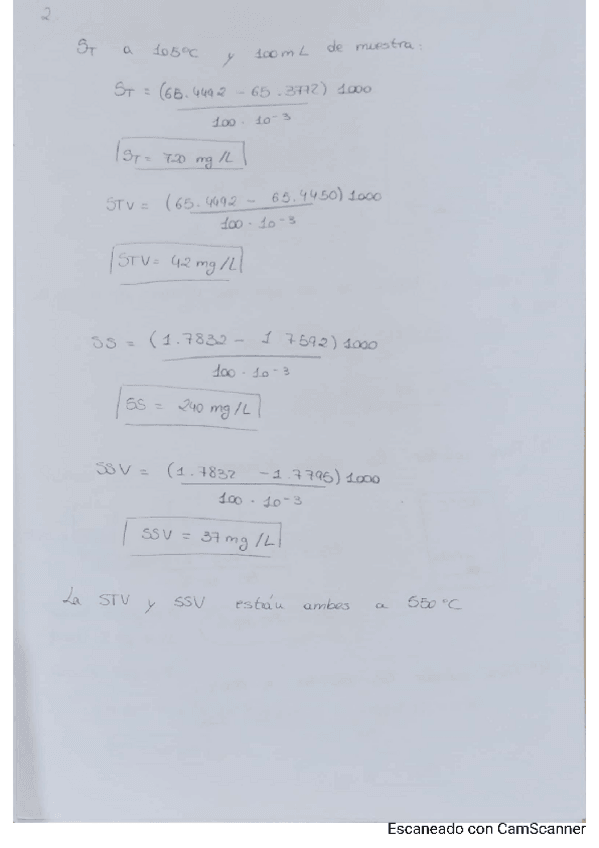 2.
ST a 105ºC y 100 mL de muestra:
ST = (65.4492 - 65.3772) 1000
100 · 10-3
ST = 720 mg/L
STV = (65.4492 - 65.4450) 1000
100 · 10-3
STV = 42 mg/L
SS = (1.7832 - 1 7592) 1000
100 · 10-3
SS = 240 mg/L
SSV = (1.7832 - 1.7795) 1000
100 · 10-3
SSV = 37 mg/L
La STV y SSV están ambos a 550ºC
Escaneado con CamScanner